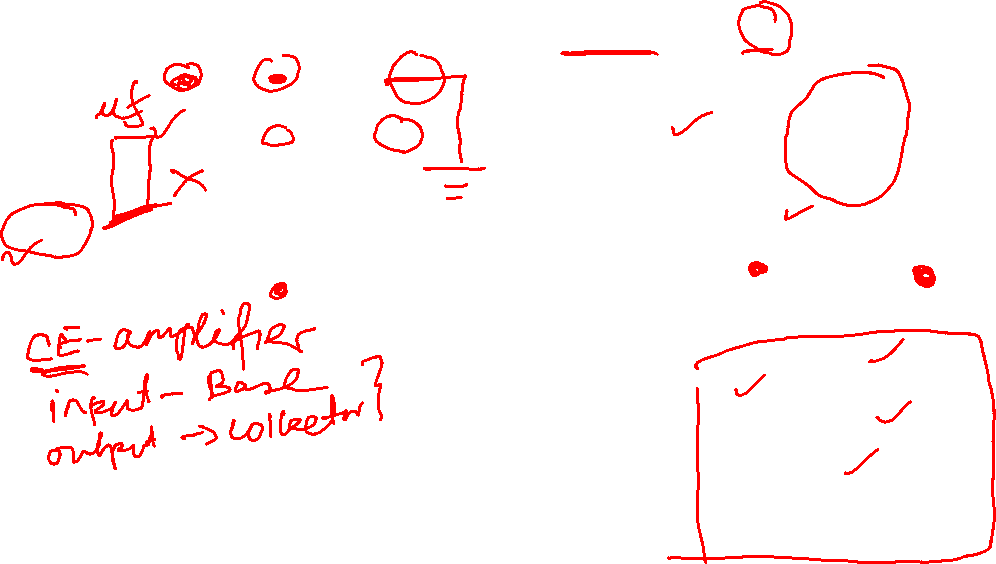 μf
CE-amplifier
input - Base
output → collector